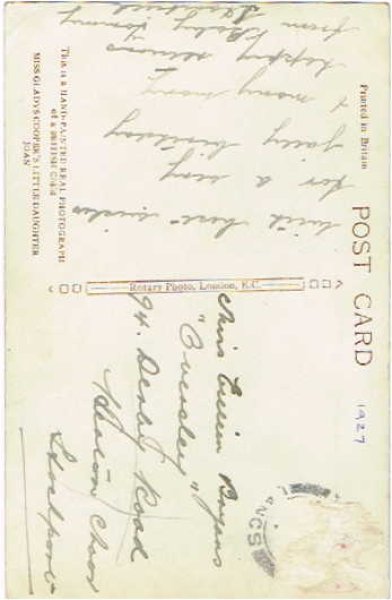 POST CARD
Printed in Britain
1927
with best wishes
for a very
jolly birthday
& many many
happy returns
from Baby Tommy
This is a HAND-PAINTED REAL PHOTOGRAPH
of a BRITISH Child
MISS GLADYS COOPER'S LITTLE DAUGHTER
JOAN
Rotary Photo, London, E.C.
Miss
94. Denby Road
Heaton Chapel
Stockport